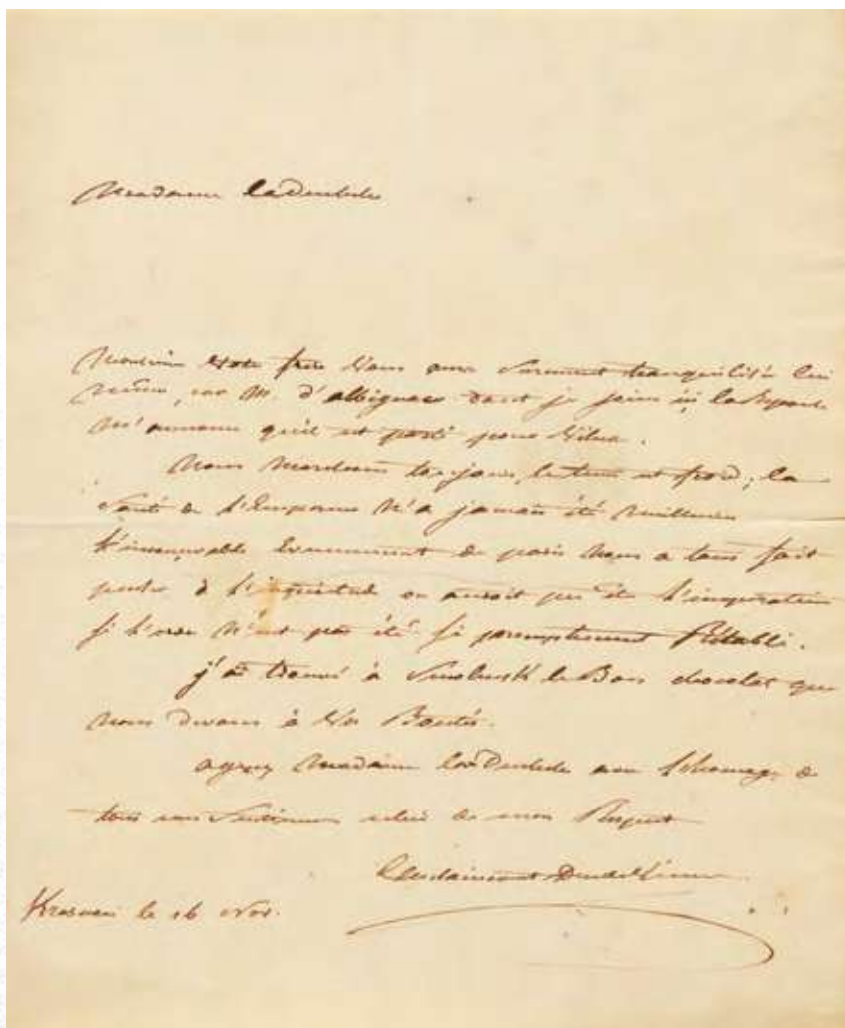 Madame la Duchesse
Monsieur Votre frere Vous aura Surement tranquilisée lui
même, car M. d'albignac dont je joins ici la Reponse
M'annonce qu'il est parti pour Vilna.
Nous Marchons toujours, le tems est froid; la
Santé de l'Empereur N'a jamais été Meilleure
l'inconcevable Evenement de paris Nous a tous fait
penser à l'inquietude qu'auroit pu être l'imperatrice
si l'ordre N'eut pas été si promptement Rétabli.
j'ai trouvé à Smolensk le Bon chocolat que
Nous devons à Vos Bontés.
agreez Madame la Duchesse avec l'homage de
tous mes Sentimens celui de mon Respect
Krasnoi le 16 Nov.